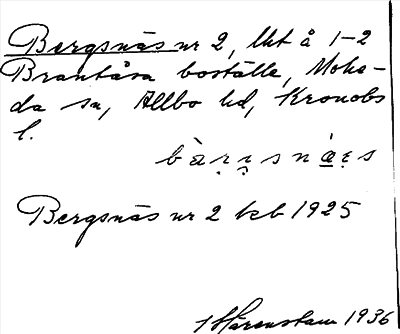 Bergsnäs nr 2, lht å 1-2
Brantåsa boställe, Mohe-
da sn, Allbo hd, Kronobs
l.
bàr̤ṣnä̀ẹs
Bergsnäs nr 2 beb 1925
Härenstam 1936